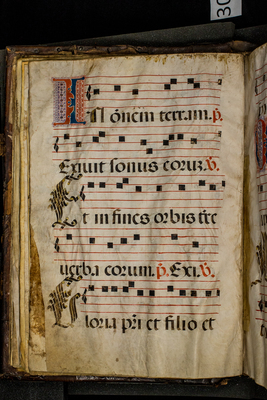 IN oēm terram. p.
Exiuit sonus eoruz. V.
Et in fines orbis tre
uerba eorum. p. Exi. V.
Gloria pri et filio et